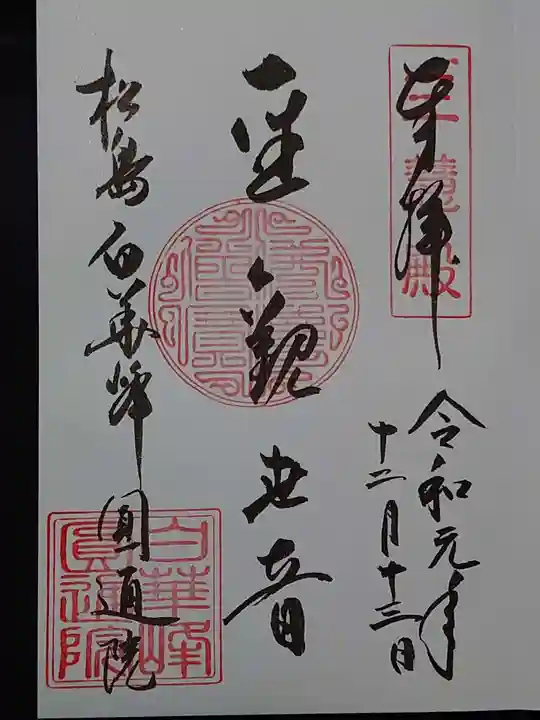 奉拝
令和元年
十二月十三日
聖観世音
松島白華峰圓通院
白華峰
圓通院